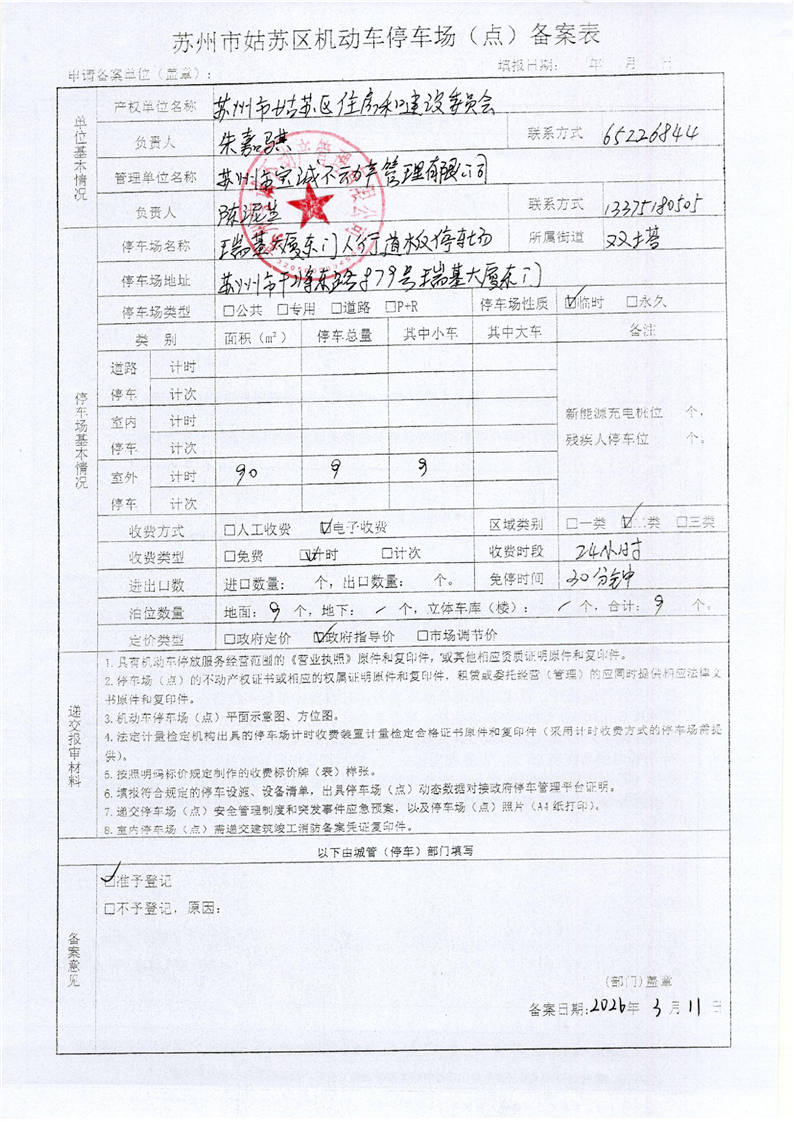 苏州市姑苏区机动车停车场（点）备案表
申请备案单位（盖章）： 填报日期： 年 月 日
单位基本情况
产权单位名称 苏州市姑苏区住房和建设委员会
负责人 朱嘉骐 联系方式 65226844
管理单位名称 苏州市宝诚不动产管理有限公司
负责人 陈泥生 联系方式 13375180505
停车场基本情况
停车场名称 瑞基大厦东门人行道板停车场 所属街道 双塔
停车场地址 苏州市干将东路879号瑞基大厦东门
停车场类型 □公共 □专用 □道路 □P+R 停车场性质 ☑临时 □永久
类 别 面积（m²） 停车总量 其中小车 其中大车 备注
道路停车 计时
计次
室内停车 计时
计次
新能源充电桩位 个，
残疾人停车位 个。
室外停车 计时 90 9 9
计次
收费方式 □人工收费 ☑电子收费 区域类别 □一类 ☑二类 □三类
收费类型 □免费 ☑计时 □计次 收费时段 24小时
进出口数 进口数量： 个，出口数量： 个。 免停时间 30分钟
泊位数量 地面：9 个，地下：/ 个，立体车库（楼）： / 个，合计：9 个。
定价类型 □政府定价 ☑政府指导价 □市场调节价
递交报审材料
1.具有机动车停放服务经营范围的《营业执照》原件和复印件，或其他相应资质证明原件和复印件。
2.停车场（点）的不动产权证书或相应的权属证明原件和复印件，租赁或委托经营（管理）的应同时提供相应法律文
书原件和复印件。
3.机动车停车场（点）平面示意图、方位图。
4.法定计量检定机构出具的停车场计时收费装置计量检定合格证书原件和复印件（采用计时收费方式的停车场需提
供）。
5.按照明码标价规定制作的收费标价牌（表）样张。
6.填报符合规定的停车设施、设备清单，出具停车场（点）动态数据对接政府停车管理平台证明。
7.递交停车场（点）安全管理制度和突发事件应急预案，以及停车场（点）照片（A4纸打印）。
8.室内停车场（点）需递交建筑竣工消防备案凭证复印件。
以下由城管（停车）部门填写
备案意见
☑准予登记
□不予登记，原因：
（部门）盖章
备案日期：2026年 3月11日